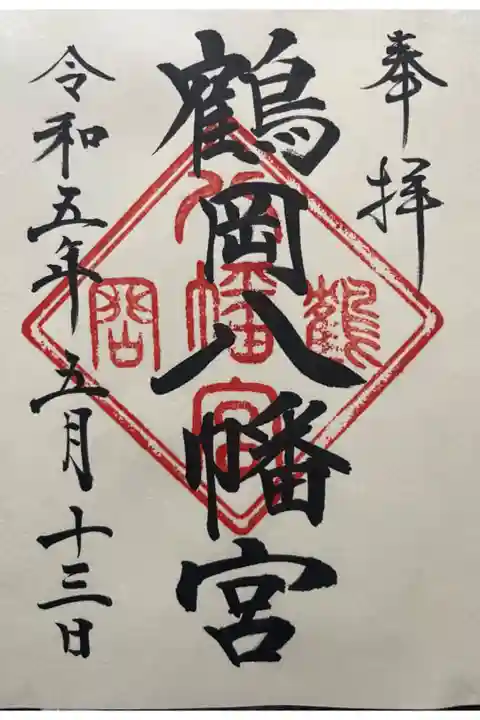 奉拝
鶴岡八幡宮
鶴岡
八幡宮
令和五年五月十三日